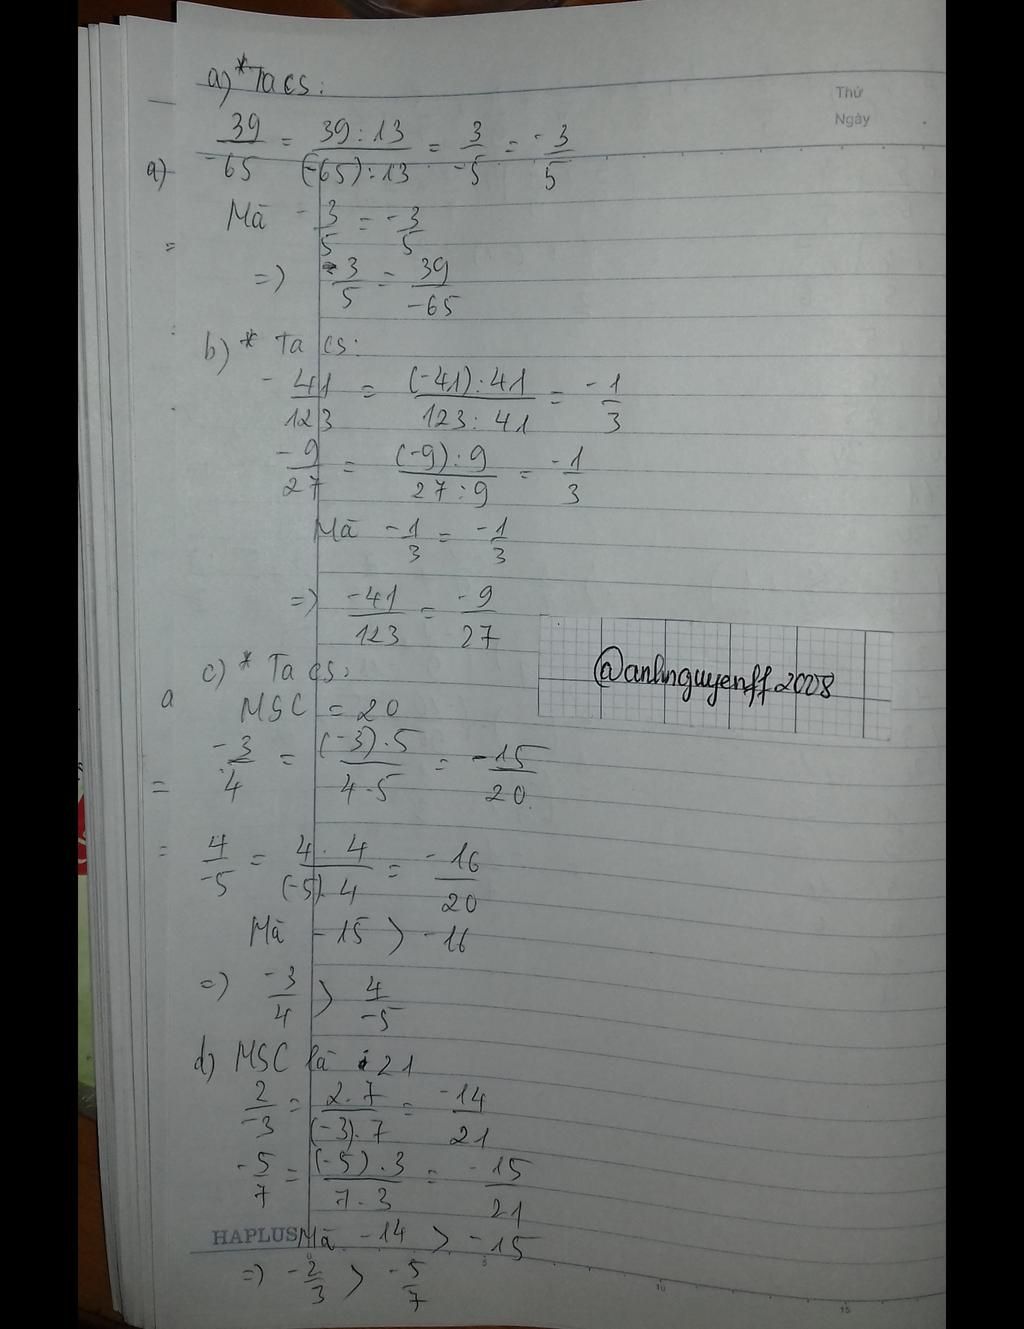 a) * Ta có:
Thứ
Ngày
39/-65 = 39:13/(-65):13 = 3/-5 = -3/5
a)
Mà -3/5 = -3/5
=
=) -3/5 = 39/-65
b) * Ta có:
-41/123 = (-41):41/123:41 = -1/3
-9/27 = (-9):9/27:9 = -1/3
Mà -1/3 = -1/3
=) -41/123 = -9/27
@anhnguyenff2008
c) * Ta có:
a
MSC = 20
-3/4 = (-3).5/4.5 = -15/20
=
= 4/-5 = 4.4/(-5).4 = -16/20
Mà -15 > -16
=) -3/4 > 4/-5
d) MSC là : 21
2/-3 = 2.7/(-3).7 = -14/21
-5/7 = (-5).3/7.3 = -15/21
HAPLUS
Mà -14 > -15
=) -2/3 > -5/7
5
10
15